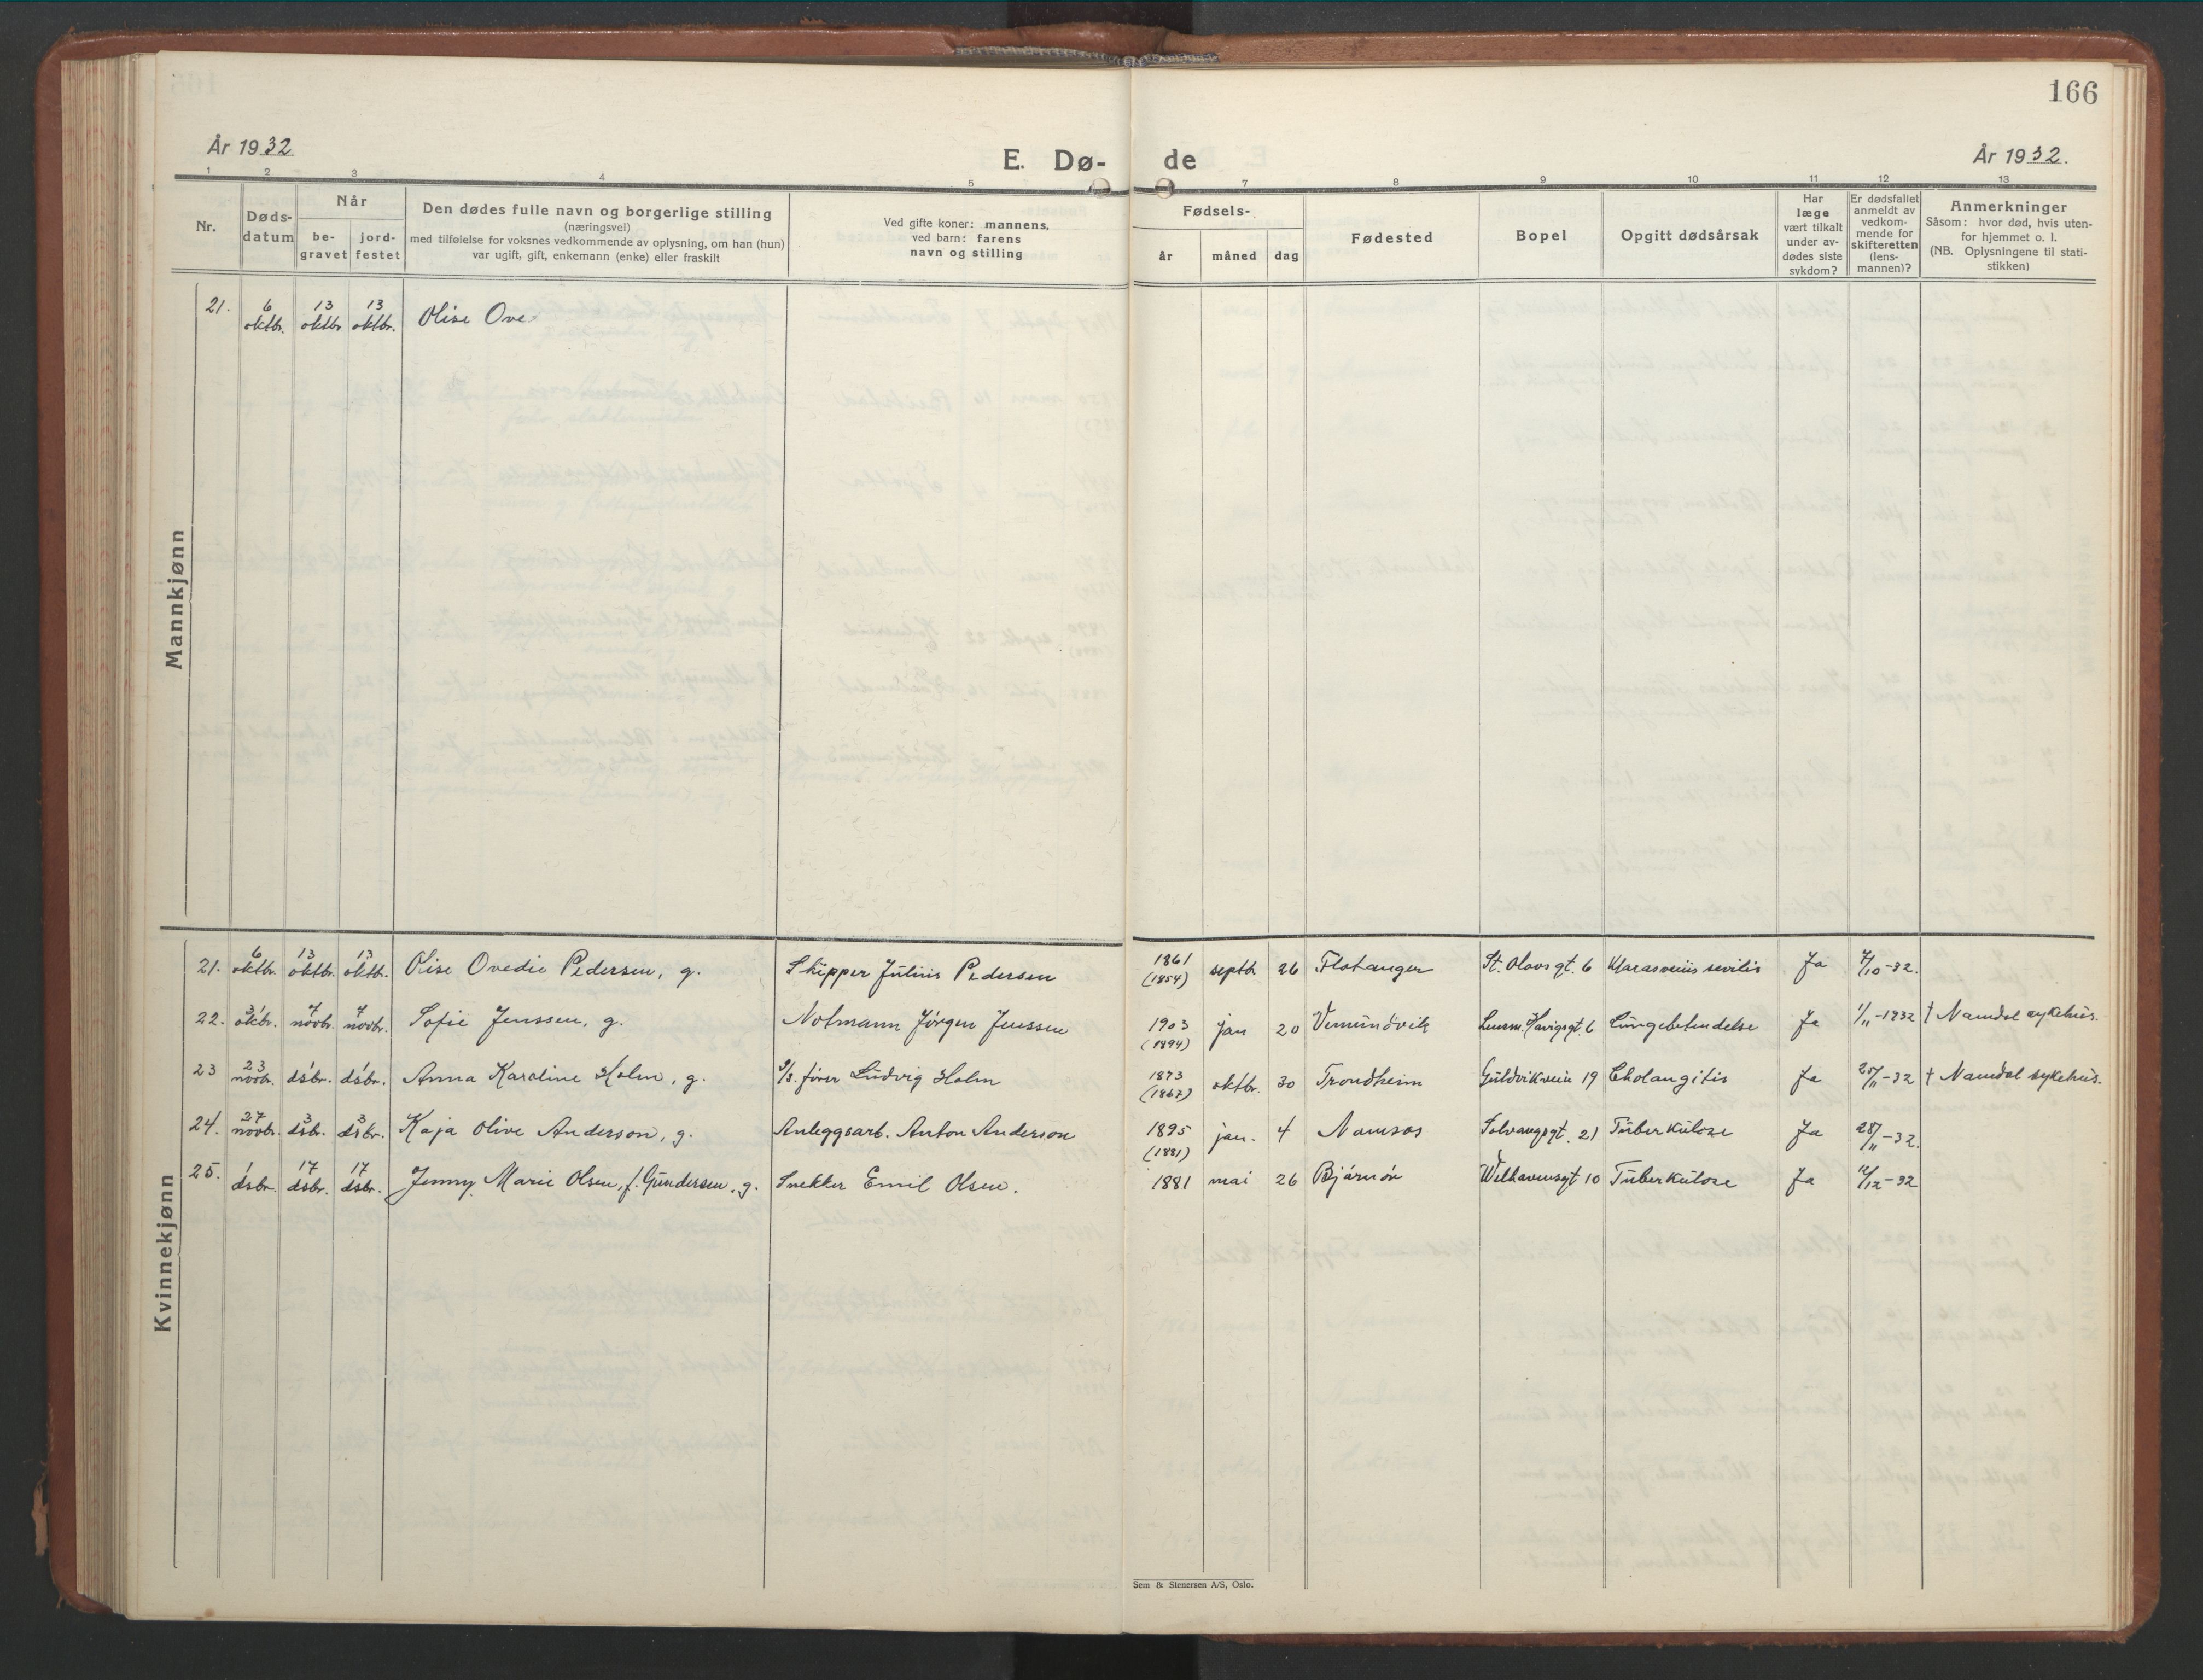 166
År 1932
E. Dø- de
År 1932.
1 2 3 4 5 7 8 9 10 11 12 13
Nr.
Døds-
datum
Når
be-
gravet
jord-
festet
Den dødes fulle navn og borgerlige stilling
(næringsvei)
med tilføielse for voksnes vedkommende av oplysning, om han (hun)
var ugift, gift, enkemann (enke) eller fraskilt
Ved gifte koner: mannens,
ved barn: farens
navn og stilling
Fødsels-
år måned dag
Fødested
Bopel
Opgitt dødsårsak
Har
læge
vært tilkalt
under av-
dødes siste
sykdom?
Er dødsfallet
anmeldt av
vedkom-
mende for
skifteretten
(lens-
mannen)?
Anmerkninger
Såsom: hvor død, hvis uten-
for hjemmet o. l.
(NB. Oplysningene til stati-
stikken)
Mannkjønn
21. 6 oktbr. 13 oktbr. 13 oktbr. Olise Ove
Kvinnekjønn
21. 6 oktbr. 13 oktbr. 13 oktbr. Olise Ovedie Pedersen, g. Skipper Julius Pedersen 1861 (1854) septb. 26 Flatanger St. Olavs gt. 6 Marasmus senilis Ja 7/10-32.
22. 31 oktbr. 7 novbr. 7 novbr. Sofie Jenssen, g. Notmann Jörgen Jenssen 1903 (1894) jan 20 Vemundvik Lensm. Havigsgt. 6 Lungebetendelse Ja 1/11-1932 † Namdal sykehus.
23 23 novbr. 1 dsbr. 1 dsbr. Anna Karoline Holm, g. D/S. fører Ludvig Holm 1873 (1867) oktbr. 30 Trondheim Guldvikveien 19 Cholangitis Ja 25/11-32 † Namdal sykehus.
24. 27 novbr. 3 dsbr. 3 dsbr. Kaja Olive Anderson, g. Anleggsarb. Anton Anderson 1895 (1881) jan. 4 Namsos Solvangsgt. 21 Tuberkulose Ja 28/11-32.
25. 1 dsbr. 17 dsbr. 17 dsbr. Jenny Marie Olsen, f. Gundersen, g. Snekker Emil Olsen. 1881 mai 26 Bjørnør Welhavensgt 10 Tuberkulose Ja 12/12-32
Sem & Stenersen A/S, Oslo.